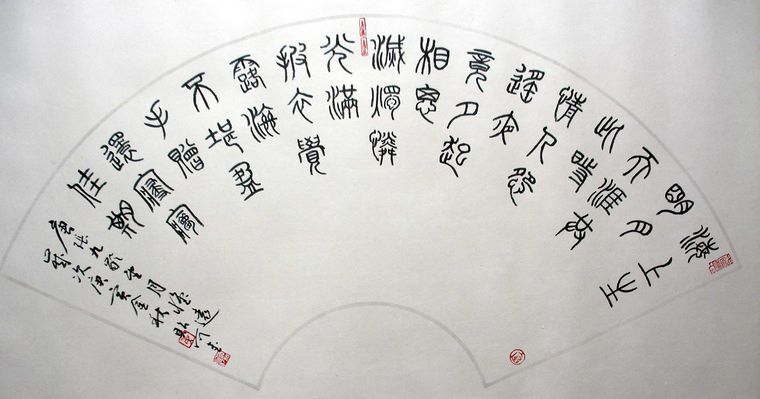 海上生
明月
天涯共
此時
情人怨
遙夜
竟夕起
相思
滅燭憐
光滿
披衣覺
露滋
不堪盈
手贈
還寢夢
佳期
唐張九齡望月懷遠
歲次庚寅金秋